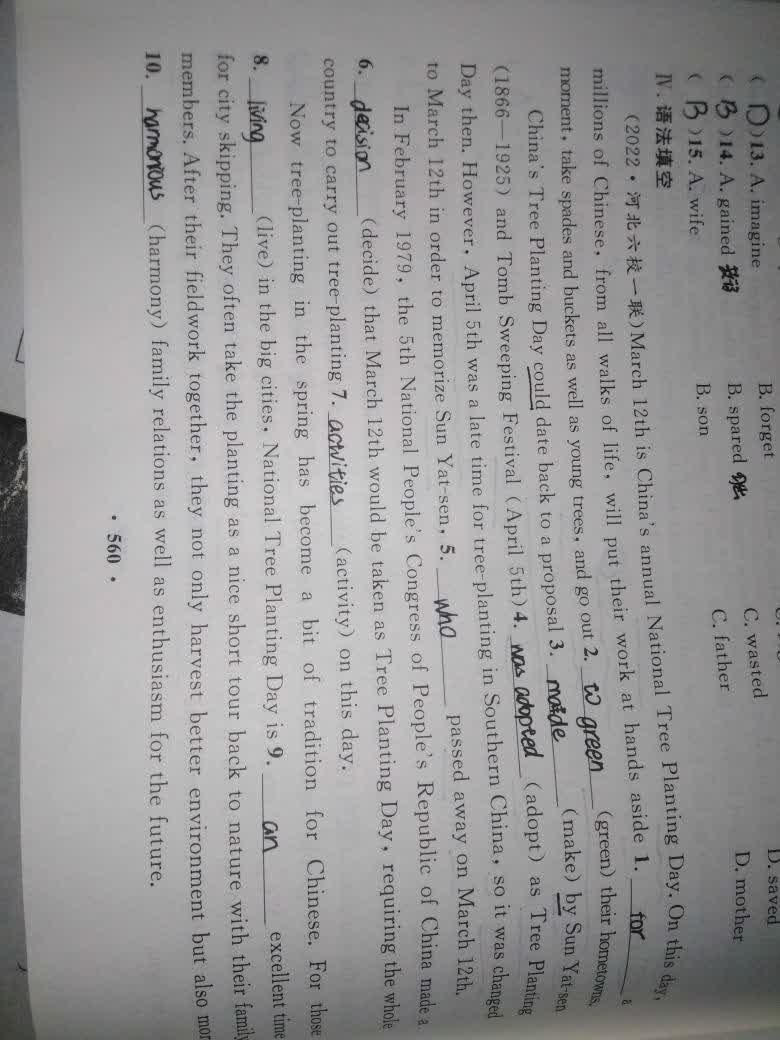 ( D )13. A. imagine B. forget
( B )14. A. gained B. spared C. wasted D. saved
( B )15. A. wife B. son C. father D. mother
Ⅳ. 语法填空
(2022·河北六校一联)March 12th is China's annual National Tree Planting Day. On this day,
millions of Chinese, from all walks of life, will put their work at hands aside 1. for a
moment, take spades and buckets as well as young trees, and go out 2. to green (green) their hometowns.
China's Tree Planting Day could date back to a proposal 3. made (make) by Sun Yat-sen
(1866—1925) and Tomb Sweeping Festival (April 5th) 4. was adopted (adopt) as Tree Planting
Day then. However, April 5th was a late time for tree-planting in Southern China, so it was changed
to March 12th in order to memorize Sun Yat-sen, 5. who passed away on March 12th.
In February 1979, the 5th National People's Congress of People's Republic of China made a
6. decision (decide) that March 12th would be taken as Tree Planting Day, requiring the whole
country to carry out tree-planting 7. activities (activity) on this day.
Now tree-planting in the spring has become a bit of tradition for Chinese. For those
8. living (live) in the big cities, National Tree Planting Day is 9. an excellent time
for city skipping. They often take the planting as a nice short tour back to nature with their family
members. After their fieldwork together, they not only harvest better environment but also
10. harmonious (harmony) family relations as well as enthusiasm for the future.
· 560 ·